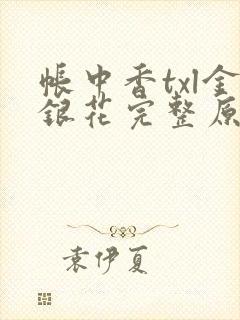 帐中香txl金
银花完整原
袁伊夏